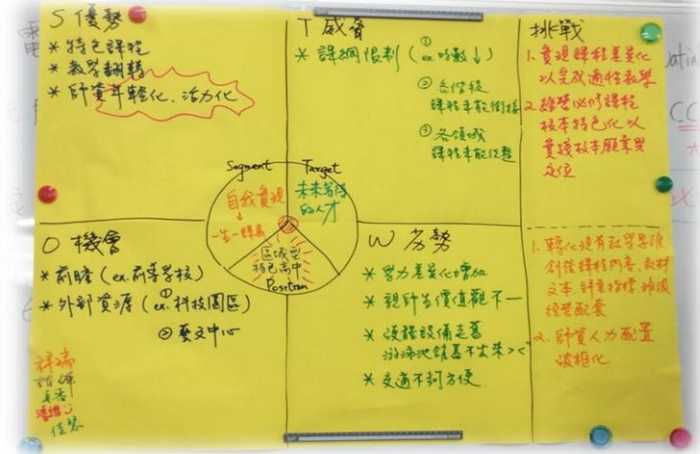 S 優勢
* 特色課程
* 教學翻轉
* 師資年輕化、活力化
T 威脅
* 課綱限制 (ex ①時數↓)
② 各階段
課程未能銜接
③ 各領域
課程未能統整
挑戰
1. 實現課程差異化
以完成適性教學
2. 經營必修課程
校本特色化以
實踐校本願景與
定位
Segment
自我實現
一生一課表
Target
未來多元
的人才
區域型
特色高中
Position
O 機會
* 前瞻 (ex. 前導學校)
* 外部資源 (ex. ①科技園區)
② 藝文中心
W 劣勢
* 學力差異化增加
* 親師生價值觀不一
* 硬體設備老舊
游泳池鍋蓋不出來><
* 交通不夠方便
1. 轉化現有教學思維
創修課程內容、教材
文本、
經營配套
2. 師資人力配置
破框化
祥瑞
佳慧